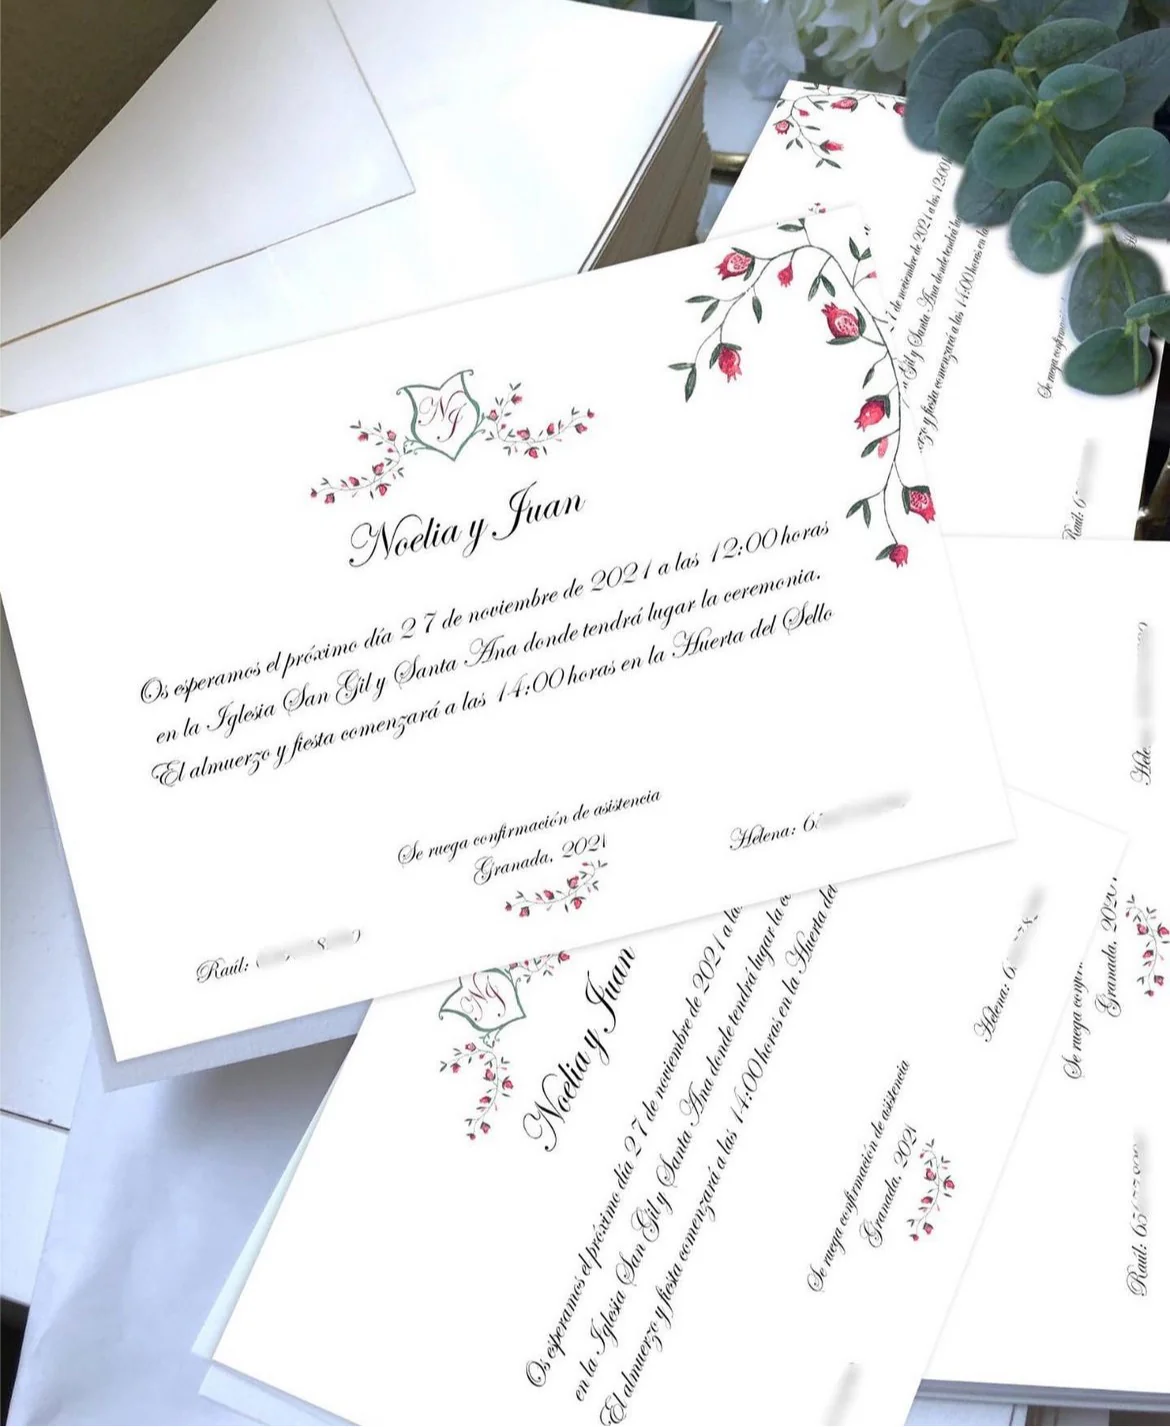 NJ
Noelia y Juan
Os esperamos el próximo día 27 de noviembre de 2021 a las 12:00 horas
en la Iglesia San Gil y Santa Ana donde tendrá lugar la ceremonia.
El almuerzo y fiesta comenzará a las 14:00 horas en la Huerta del Sello
Se ruega confirmación de asistencia
Granada, 2021
Helena: 6
Raúl:
7 de noviembre de 2021 a las 12:00
Gil y Santa Ana donde tendrá
y fiesta comenzará a las 14:00 horas en la
Se ruega
Raúl: 6
NJ
Noelia y Juan
Os esperamos el próximo día 27 de noviembre de 2021 a la
en la Iglesia San Gil y Santa Ana donde tendrá lugar la
El almuerzo y fiesta comenzará a las 14:00 horas en la Huerta del
Se ruega confirmación de asistencia
Granada, 2021
Helena: 6
Se ruega
Granada, 202
Raúl: 65